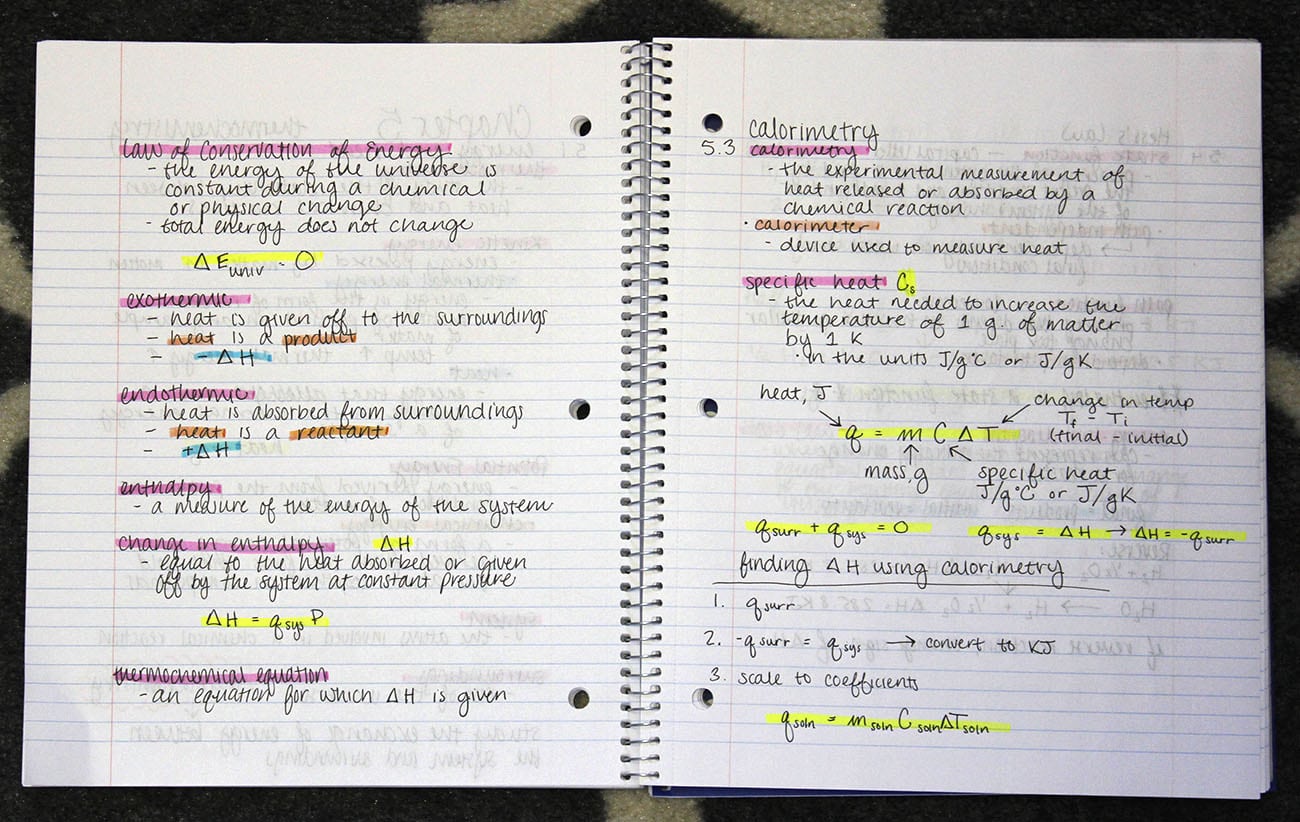 Law of Conservation of Energy.
- the energy of the universe is
constant during a chemical
or physical change
- total energy does not change
Δ E univ = 0
exothermic
- heat is given off to the surroundings
- heat is a product
- - Δ H
endothermic
- heat is absorbed from surroundings
- heat is a reactant
- +Δ H
enthalpy
- a measure of the energy of the system
change in enthalpy Δ H
- equal to the heat absorbed or given
off by the system at constant pressure
Δ H = q sys P
thermochemical equation
- an equation for which Δ H is given
calorimetry
5.3 calorimetry
- the experimental measurement of
heat released or absorbed by a
chemical reaction
· calorimeter
- device used to measure heat
specific heat Cs
- the heat needed to increase the
temperature of 1 g. of matter
by 1 K
· in the units J/g°C or J/gK
heat, J
change in temp
Tf Ti
(final - initial)
q = m C Δ T
mass, g
specific heat
J/g°C or J/gK
q surr + q sys = 0
q sys = Δ H → Δ H = -q surr
finding Δ H using calorimetry
1. q surr
2. -q surr = q sys → convert to KJ
3. scale to coefficients
q soln = m soln C soln ΔT soln